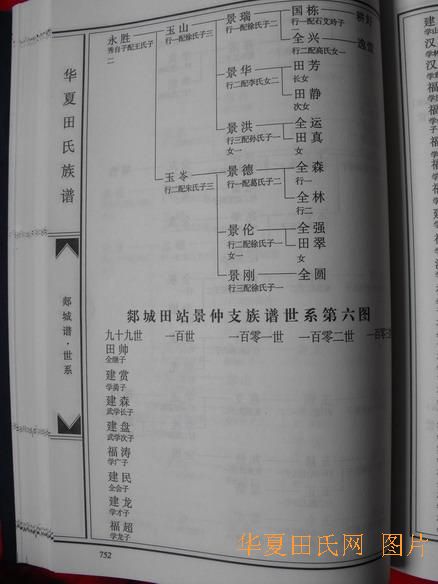 华夏田氏族谱
郯城谱·世系
永胜
秀自子配王氏子
二
玉山
行一配徐氏子三
景瑞
行一配徐氏子二
国栋
行一配石艾玲子
二
耕好
全兴
行二配高氏女一
逸雪
景华
行二配李氏女二
田芳
长女
田静
次女
景洪
行三配孙氏子一
女一
全运
田真
女
玉岺
行二配朱氏子三
景德
行一配葛氏子二
全森
行一
全林
行二
景伦
行二配徐氏子一
女一
全强
田翠
女
景刚
行三配徐氏子一
全圆
郯城田站景仲支族谱世系第六图
九十九世 一百世 一百零一世 一百零二世 一百零三
田帅
全继子
建赏
学勇子
建森
武学长子
建盘
武学次子
福涛
学广子
建民
全会子
建龙
学才子
福超
学龙子
752
华夏田氏网 图片